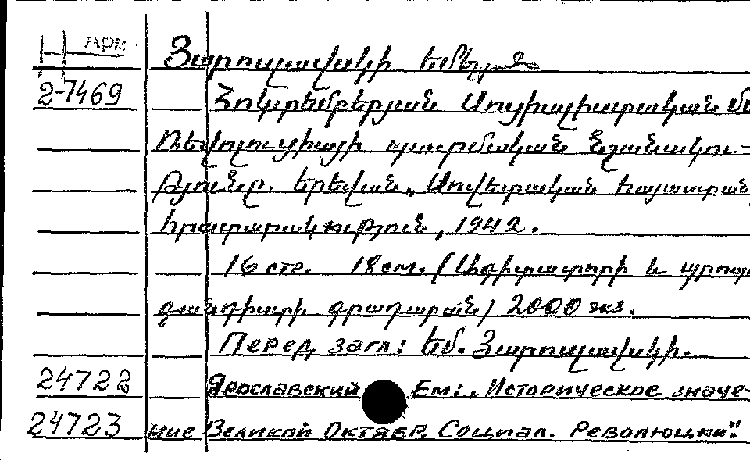 Арм
Յարոսլավսկի Եմելյան
2-7469 Հոկտեմբերյան Սոցիալիստական մ
Ռեվոլուցիայի պատմական նշանակու-
թյունը. Երեվան, Սովետական Հայաստան
հրատարակչություն, 1942.
16 стр. 18 см. (Ագիտատորի և պրոպա
գանդիստի գրադարան) 2000 экз.
Перед загл: Եմ. Յարոսլավսկի.
24722 Ярославский Ем: „Историческое значе-
24723 ние Великой Октябр. Социал. Революции".